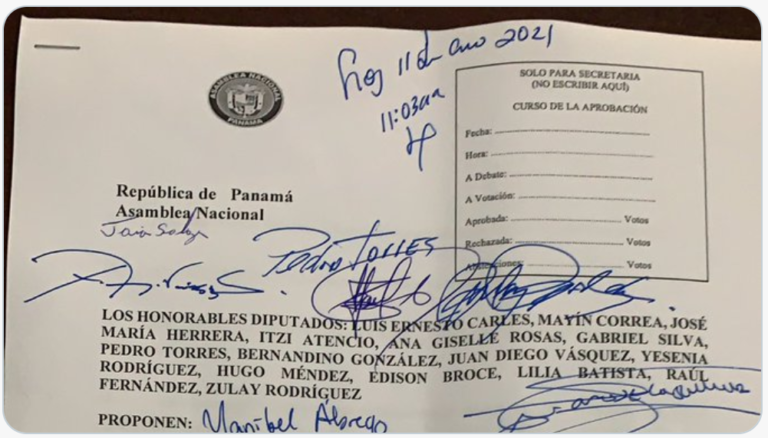 Hoy 11 de Ene 2021
11:03am
ASAMBLEA NACIONAL
PANAMÁ
SOLO PARA SECRETARIA
(NO ESCRIBIR AQUÍ)
CURSO DE LA APROBACIÓN
Fecha:
Hora:
A Debate:
A Votación:
Aprobada: Votos
Rechazada: Votos
Abstenciones: Votos
República de Panamá
Asamblea Nacional
Pedro TORRES
LOS HONORABLES DIPUTADOS: LUIS ERNESTO CARLES, MAYÍN CORREA, JOSÉ
MARÍA HERRERA, ITZI ATENCIO, ANA GISELLE ROSAS, GABRIEL SILVA,
PEDRO TORRES, BERNANDINO GONZÁLEZ, JUAN DIEGO VÁSQUEZ, YESENIA
RODRÍGUEZ, HUGO MÉNDEZ, EDISON BROCE, LILIA BATISTA, RAÚL
FERNÁNDEZ, ZULAY RODRÍGUEZ
PROPONEN: Maribel Abrego